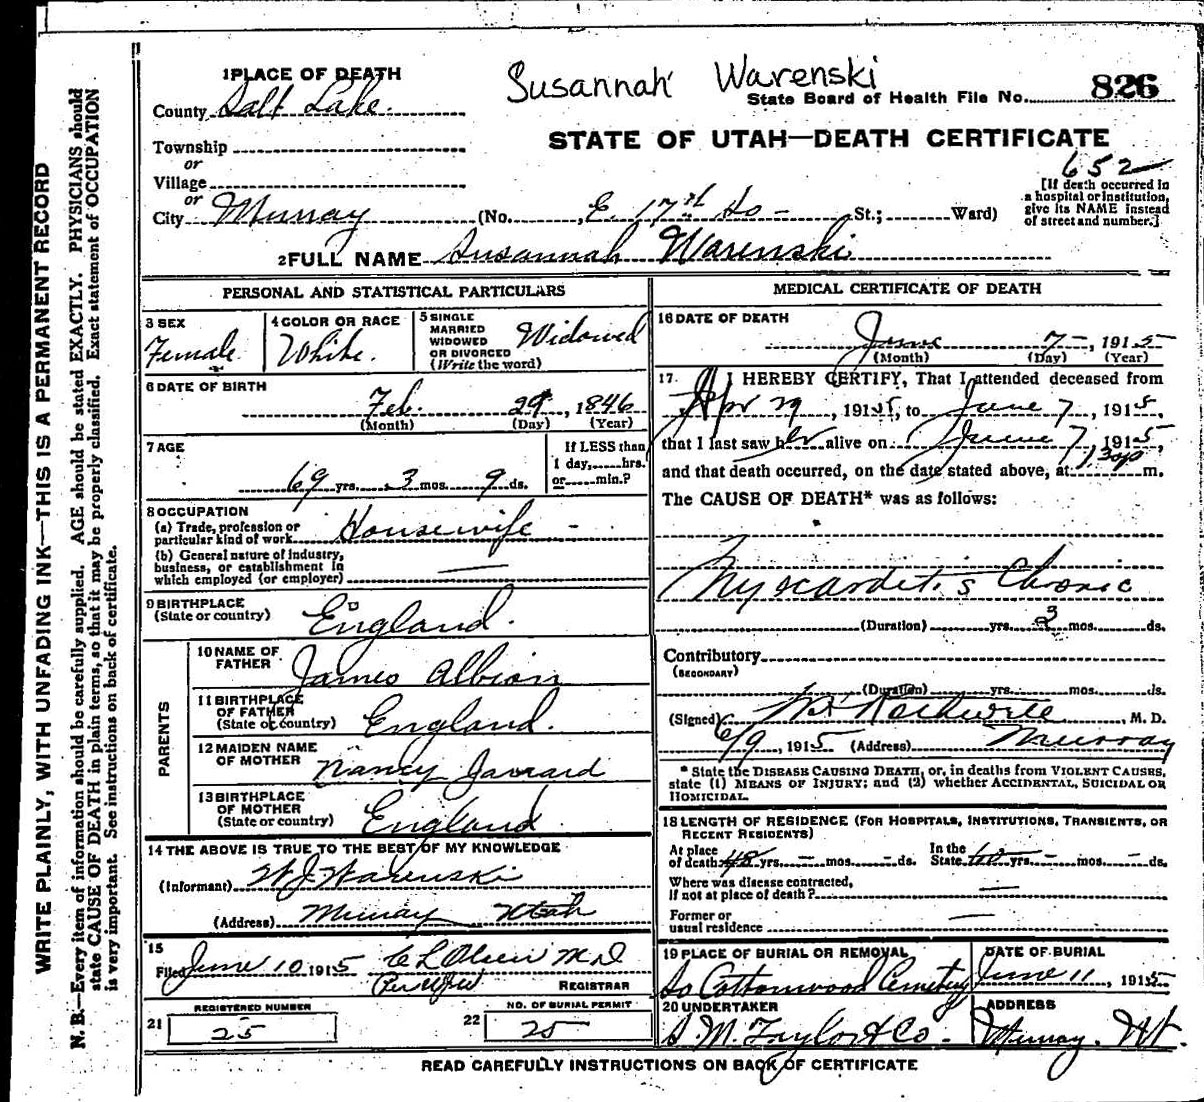 Susannah Warenski
1 PLACE OF DEATH
County Salt Lake.
State Board of Health File No. 826
Township
or
Village
or
STATE OF UTAH—DEATH CERTIFICATE
652
[If death occurred in a hospital or institution, give its NAME instead of street and number.]
City Murray (No. E. 17th So - St.; Ward)
2 FULL NAME Susannah Warenski
PERSONAL AND STATISTICAL PARTICULARS
3 SEX
Female.
4 COLOR OR RACE
White.
5 SINGLE
MARRIED
WIDOWED
OR DIVORCED
(Write the word)
Widowed
6 DATE OF BIRTH
Feb. 29, 1846
(Month) (Day) (Year)
7 AGE
69 yrs. 3 mos. 9 ds.
If LESS than
1 day, hrs.
or min.?
8 OCCUPATION
(a) Trade, profession or
particular kind of work Housewife -
(b) General nature of industry,
business, or establishment in
which employed (or employer)
9 BIRTHPLACE
(State or country) England.
PARENTS
10 NAME OF
FATHER James Albion
11 BIRTHPLACE
OF FATHER
(State or country) England.
12 MAIDEN NAME
OF MOTHER Nancy Jarrard
13 BIRTHPLACE
OF MOTHER
(State or country) England
14 THE ABOVE IS TRUE TO THE BEST OF MY KNOWLEDGE
(Informant) W J Warenski
(Address) Murray Utah
15
Filed June 10 1915 C L Olsen M D
REGISTRAR
REGISTERED NUMBER
21 25
NO. OF BURIAL PERMIT
22 25
MEDICAL CERTIFICATE OF DEATH
16 DATE OF DEATH
June 7-, 1915
(Month) (Day) (Year)
17. I HEREBY CERTIFY, That I attended deceased from
Apr 29, 1915, to June 7, 1915,
that I last saw her alive on June 7, 1915
and that death occurred, on the date stated above, at 1.30p m.
The CAUSE OF DEATH* was as follows:
Myocarditis Chronic
(Duration) yrs. 3 mos. ds.
Contributory
(SECONDARY)
(Duration) yrs. mos. ds.
(Signed) Rothwell, M. D.
6/9, 1915 (Address) Murray
* State the DISEASE CAUSING DEATH, or, in deaths from VIOLENT CAUSES,
state (1) MEANS OF INJURY; and (2) whether ACCIDENTAL, SUICIDAL OR
HOMICIDAL.
18 LENGTH OF RESIDENCE (FOR HOSPITALS, INSTITUTIONS, TRANSIENTS, OR
RECENT RESIDENTS)
At place
of death 48 yrs. - mos. - ds. In the
State 60 yrs. - mos. - ds.
Where was disease contracted,
if not at place of death? —
Former or
usual residence —
19 PLACE OF BURIAL OR REMOVAL
So Cottonwood Cemetery
DATE OF BURIAL
June 11, 1915
20 UNDERTAKER
S. M. Taylor & Co -
ADDRESS
Murray. Ut.
READ CAREFULLY INSTRUCTIONS ON BACK OF CERTIFICATE
WRITE PLAINLY, WITH UNFADING INK—THIS IS A PERMANENT RECORD
N. B.—Every item of information should be carefully supplied. AGE should be stated EXACTLY. PHYSICIANS should
state CAUSE OF DEATH in plain terms, so that it may be properly classified. Exact statement of OCCUPATION
is very important. See instructions on back of certificate.